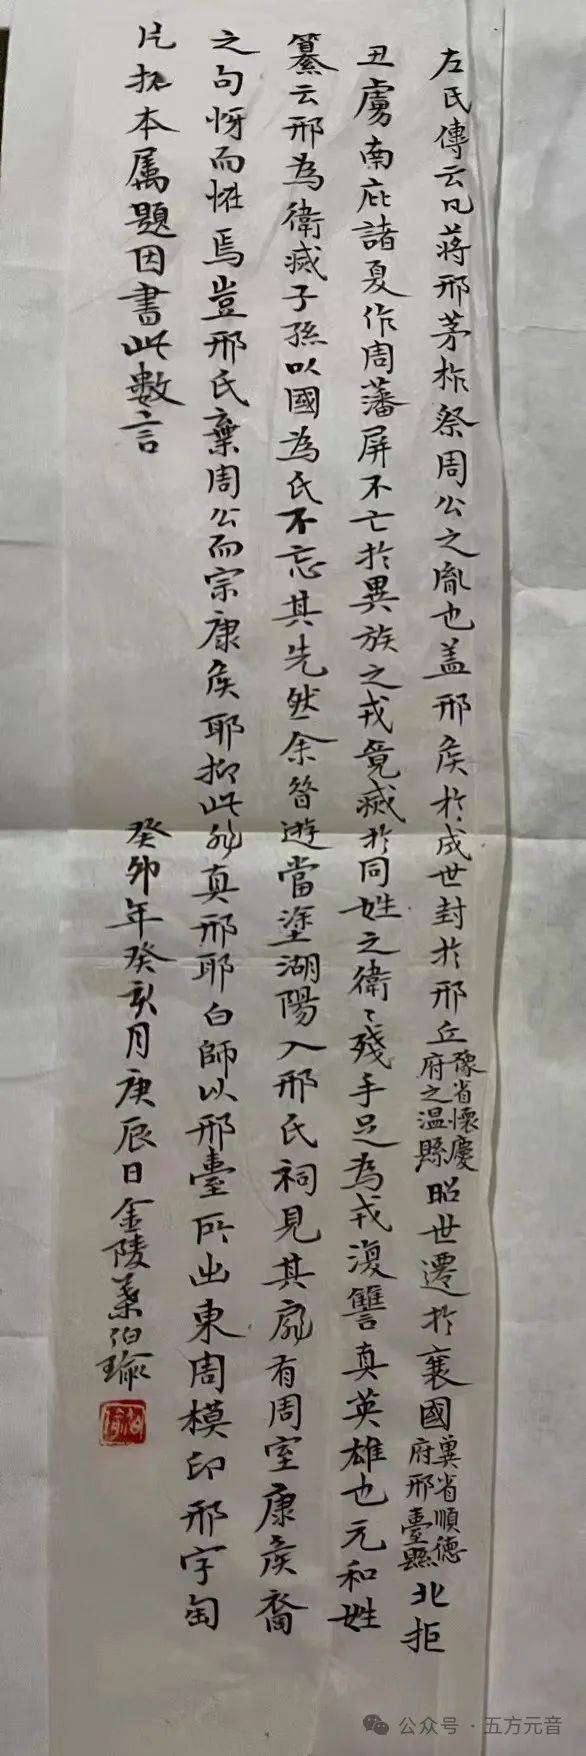 左氏傳云凡蔣邢茅胙祭周公之胤也蓋邢侯於成世封於邢丘豫省懷慶府之温縣昭世遷於襄國冀省順德府邢臺縣北拒
丑虜南庇諸夏作周藩屏不亡於異族之戎竟滅於同姓之衛〻殘手足為戎復讐真英雄也元和姓
纂云邢為衛滅子孫以國為氏不忘其先然余昝遊當塗湖陽入邢氏祠見其廟有周室康侯裔
之句怪而怪焉豈邢氏棄周公而宗康侯耶抑此非真邢耶白師以邢臺所出東周模印邢字匋
片拓本属題因書此數言
癸卯年癸亥月庚辰日金陵葉伯瑜
公众号·五方元音